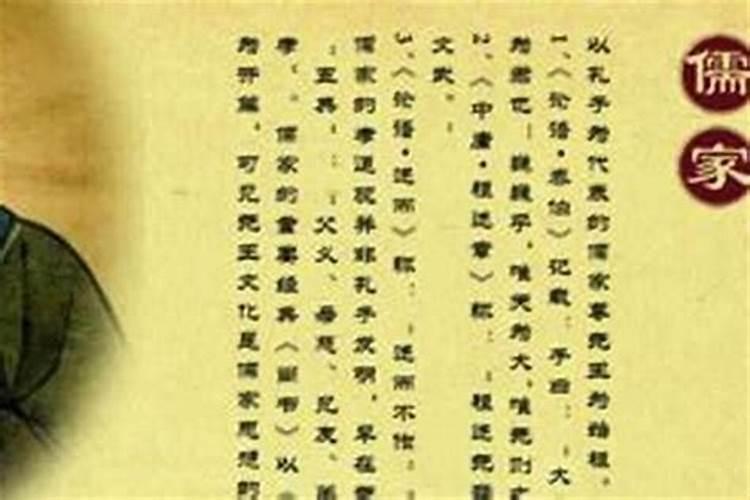 儒家
以孔子为代表的儒家尊尧王为始祖。
1、《论语·泰伯》记载：子曰：“大
为君也！巍巍乎，唯天为大，唯尧则
2、《中庸·祖述章》称：“祖述尧
文武。”
3、《论语·述而》称：“述而不作
儒家的孝道观并非孔子发明，早在
“五典”：“父义、母慈、兄友、
孝”。儒家的重要经典《尚书》以
为开篇。可见尧王文化是儒家思想的